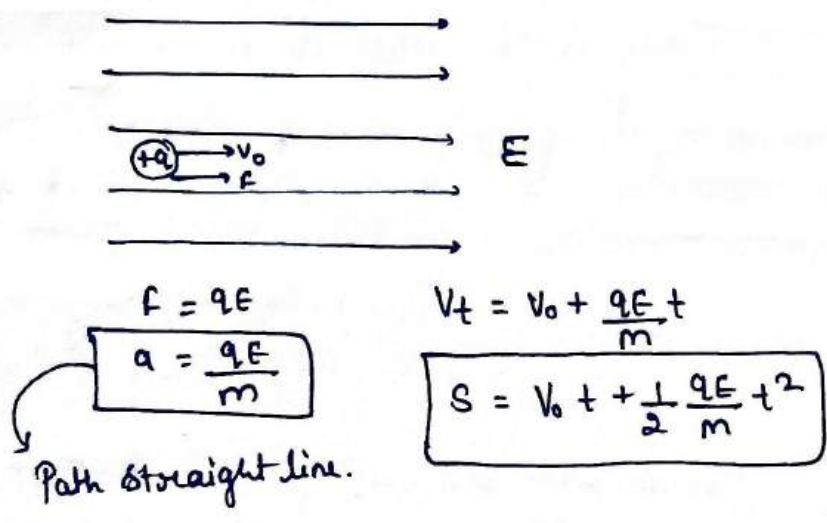 +q V₀
F
E
F = qE
a = qE/m
Path straight line.
Vt = V₀ + qE/m t
S = V₀ t + 1/2 qE/m t²